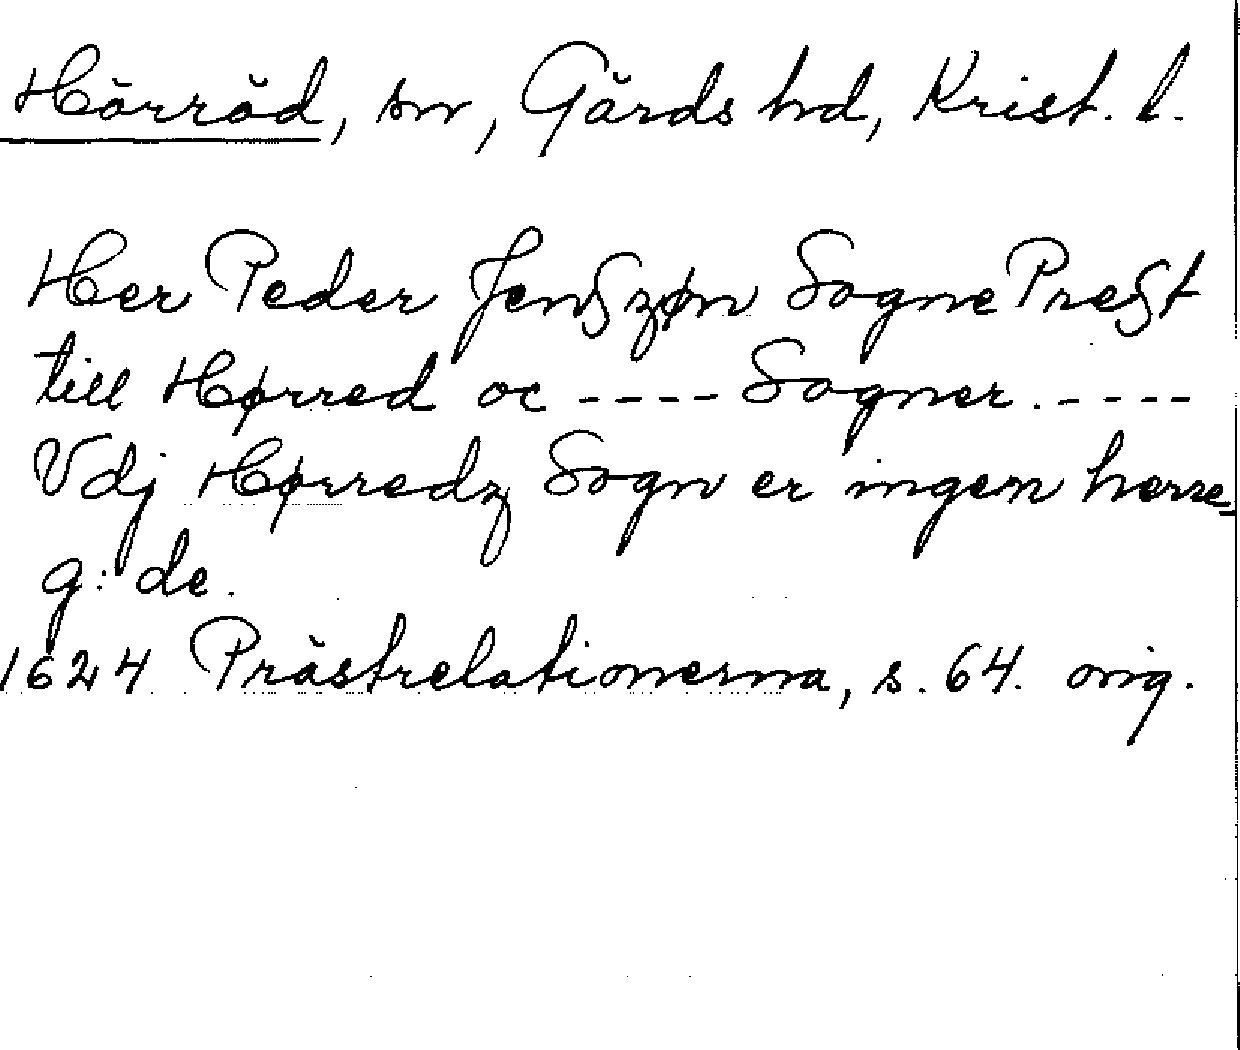 Hörröd, sn, Gärds hd, Krist. l.
Her Peder Jenſzøn Sogne Preſt
till Hørred oc ---- Sogner.-----
Vdj Hørredz Sogn er ingen herre,
g: de.
1624 Prästrelationerna, s. 64. orig.